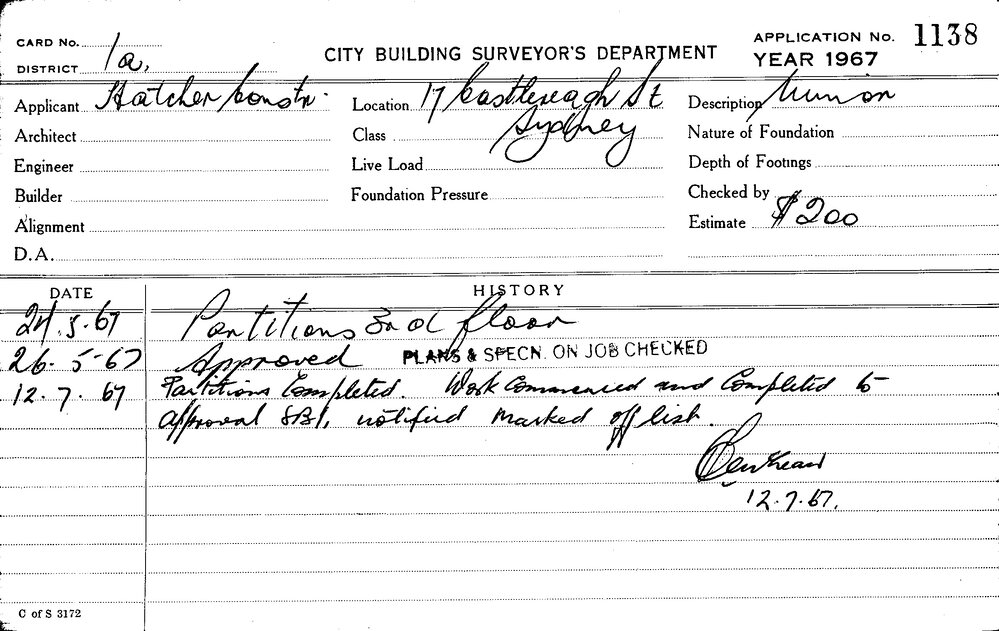 CARD No. 1a,
DISTRICT
CITY BUILDING SURVEYOR'S DEPARTMENT
APPLICATION No. 1138
YEAR 1967
Applicant Hatcher Constr.
Location 17 Castlereagh St
Sydney
Description Minor
Architect
Class
Nature of Foundation
Engineer
Live Load
Depth of Footings
Builder
Foundation Pressure
Checked by
Alignment
Estimate $200
D.A.
DATE HISTORY
24.5.67 Partitions 3rd floor
26.5-67 Approved PLANS & SPECN. ON JOB CHECKED
12.7.67 Partitions Completed. Work Commenced and Completed to
approval notified marked off list.
12.7.67.
C of S 3172